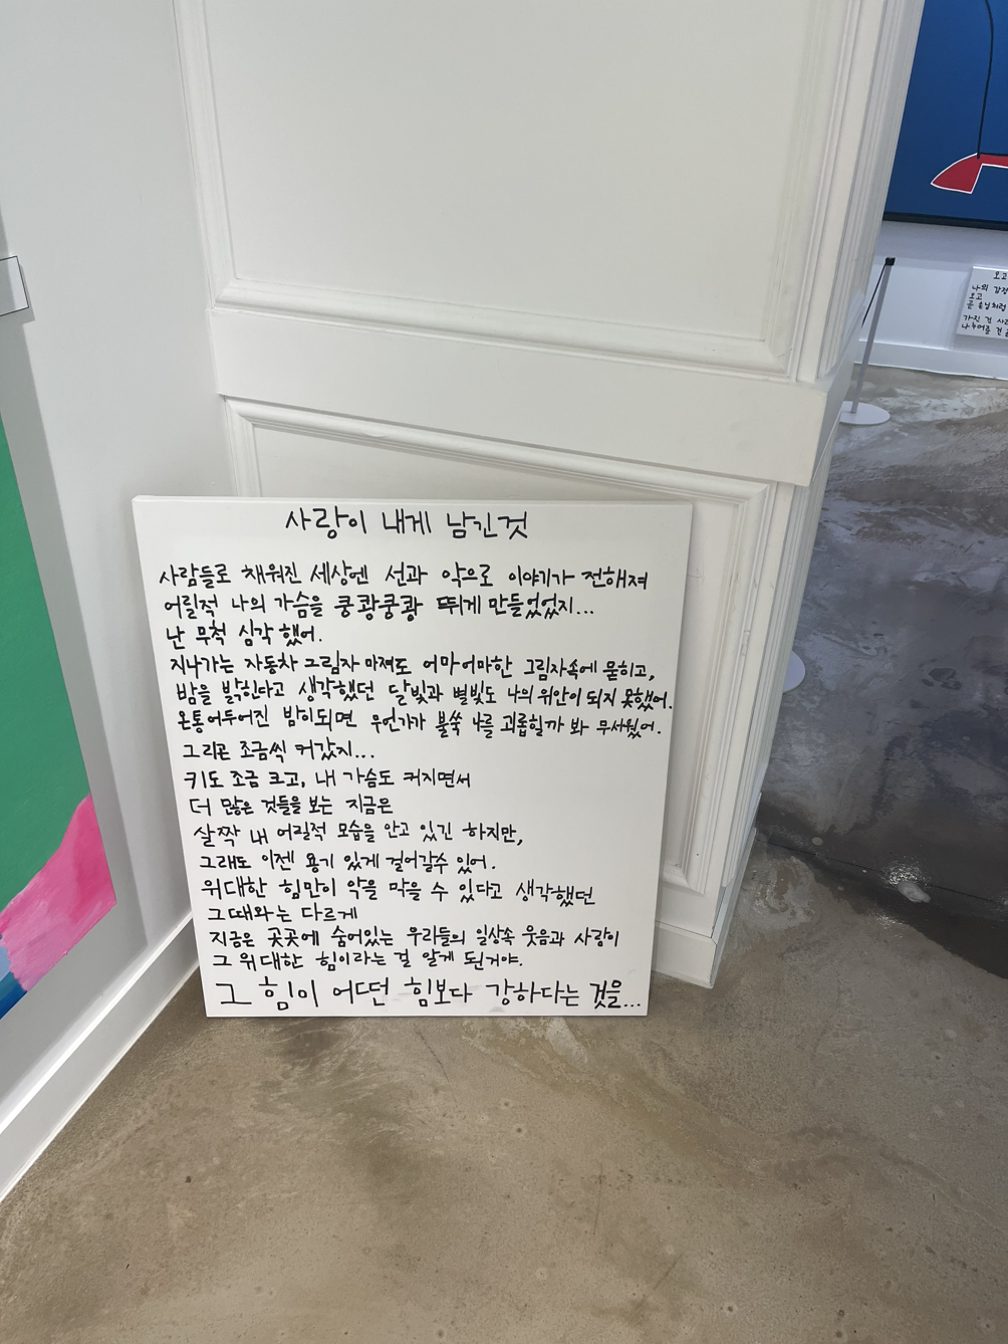 사랑이 내게 남긴것
사람들로 채워진 세상엔 선과 악으로 이야기가 전해져
어릴적 나의 가슴을 쿵쾅쿵쾅 뛰게 만들었었지...
난 무척 심각했어.
지나가는 자동차 그림자 마져도 어마어마한 그림자속에 묻히고,
밤을 밝힌다고 생각했던 달빛과 별빛도 나의 위안이 되지 못했어.
온통 어두어진 밤이되면 무언가가 불쑥 나를 괴롭힐까 봐 무서웠어.
그리곤 조금씩 커갔지...
키도 조금 크고, 내 가슴도 커지면서
더 많은 것들을 보는 지금은
살짝 내 어릴적 모습을 안고 있긴 하지만,
그래도 이젠 용기 있게 걸어갈수 있어.
위대한 힘만이 악을 막을 수 있다고 생각했던
그때와는 다르게
지금은 곳곳에 숨어있는 우리들의 일상속 웃음과 사랑이
그 위대한 힘이라는 걸 알게 된거야.
그 힘이 어떤 힘보다 강하다는 것을...
오고
나의 감정
오고
가진 건